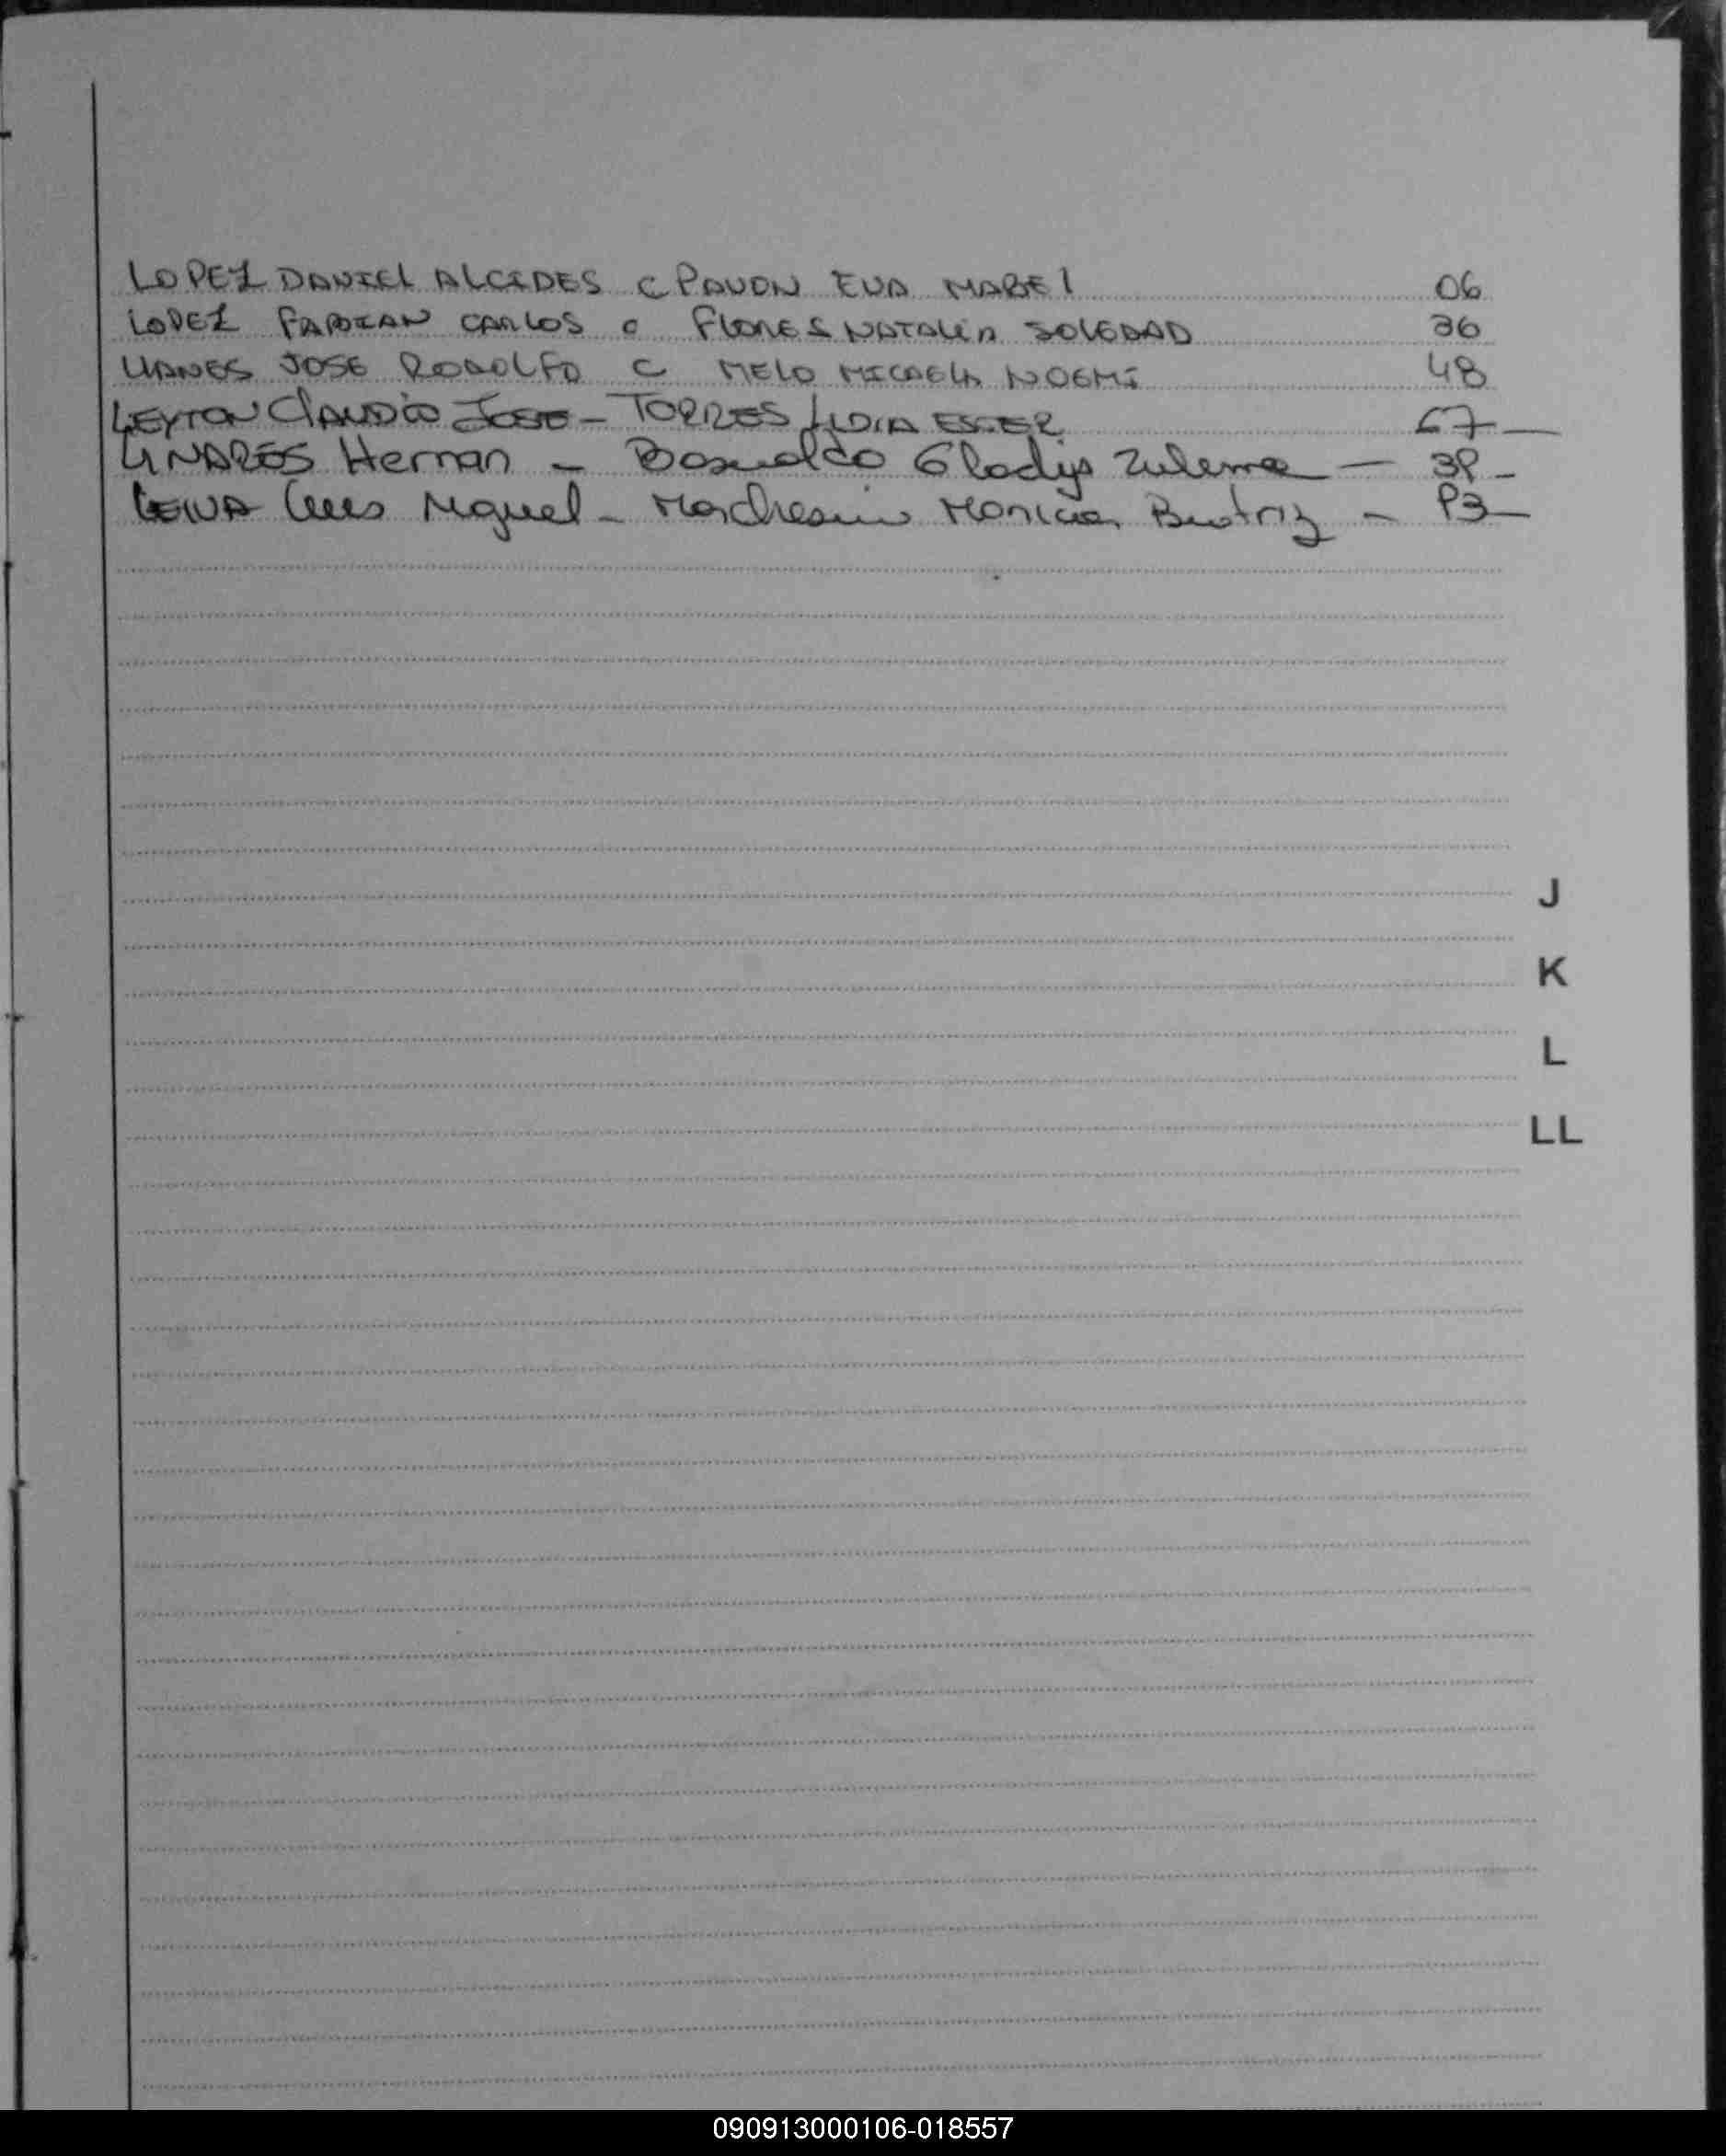 LOPEZ DANIEL ALCIDES C PAVON EVA MABEL 06
LOPEZ FABIAN CARLOS C FLORES NATALIA SOLEDAD 36
LLANES JOSE RODOLFO C MELO MICAELA NOEMI 48
LEYTON CLAUDIO JOSE - TORRES LIDIA ESTER 67
LINARES Hernan - Basualdo Gladys Zulema -
LEIVA Luis Miguel - Marchesini Monica Beatriz -
J
K
L
LL
090913000106-018557